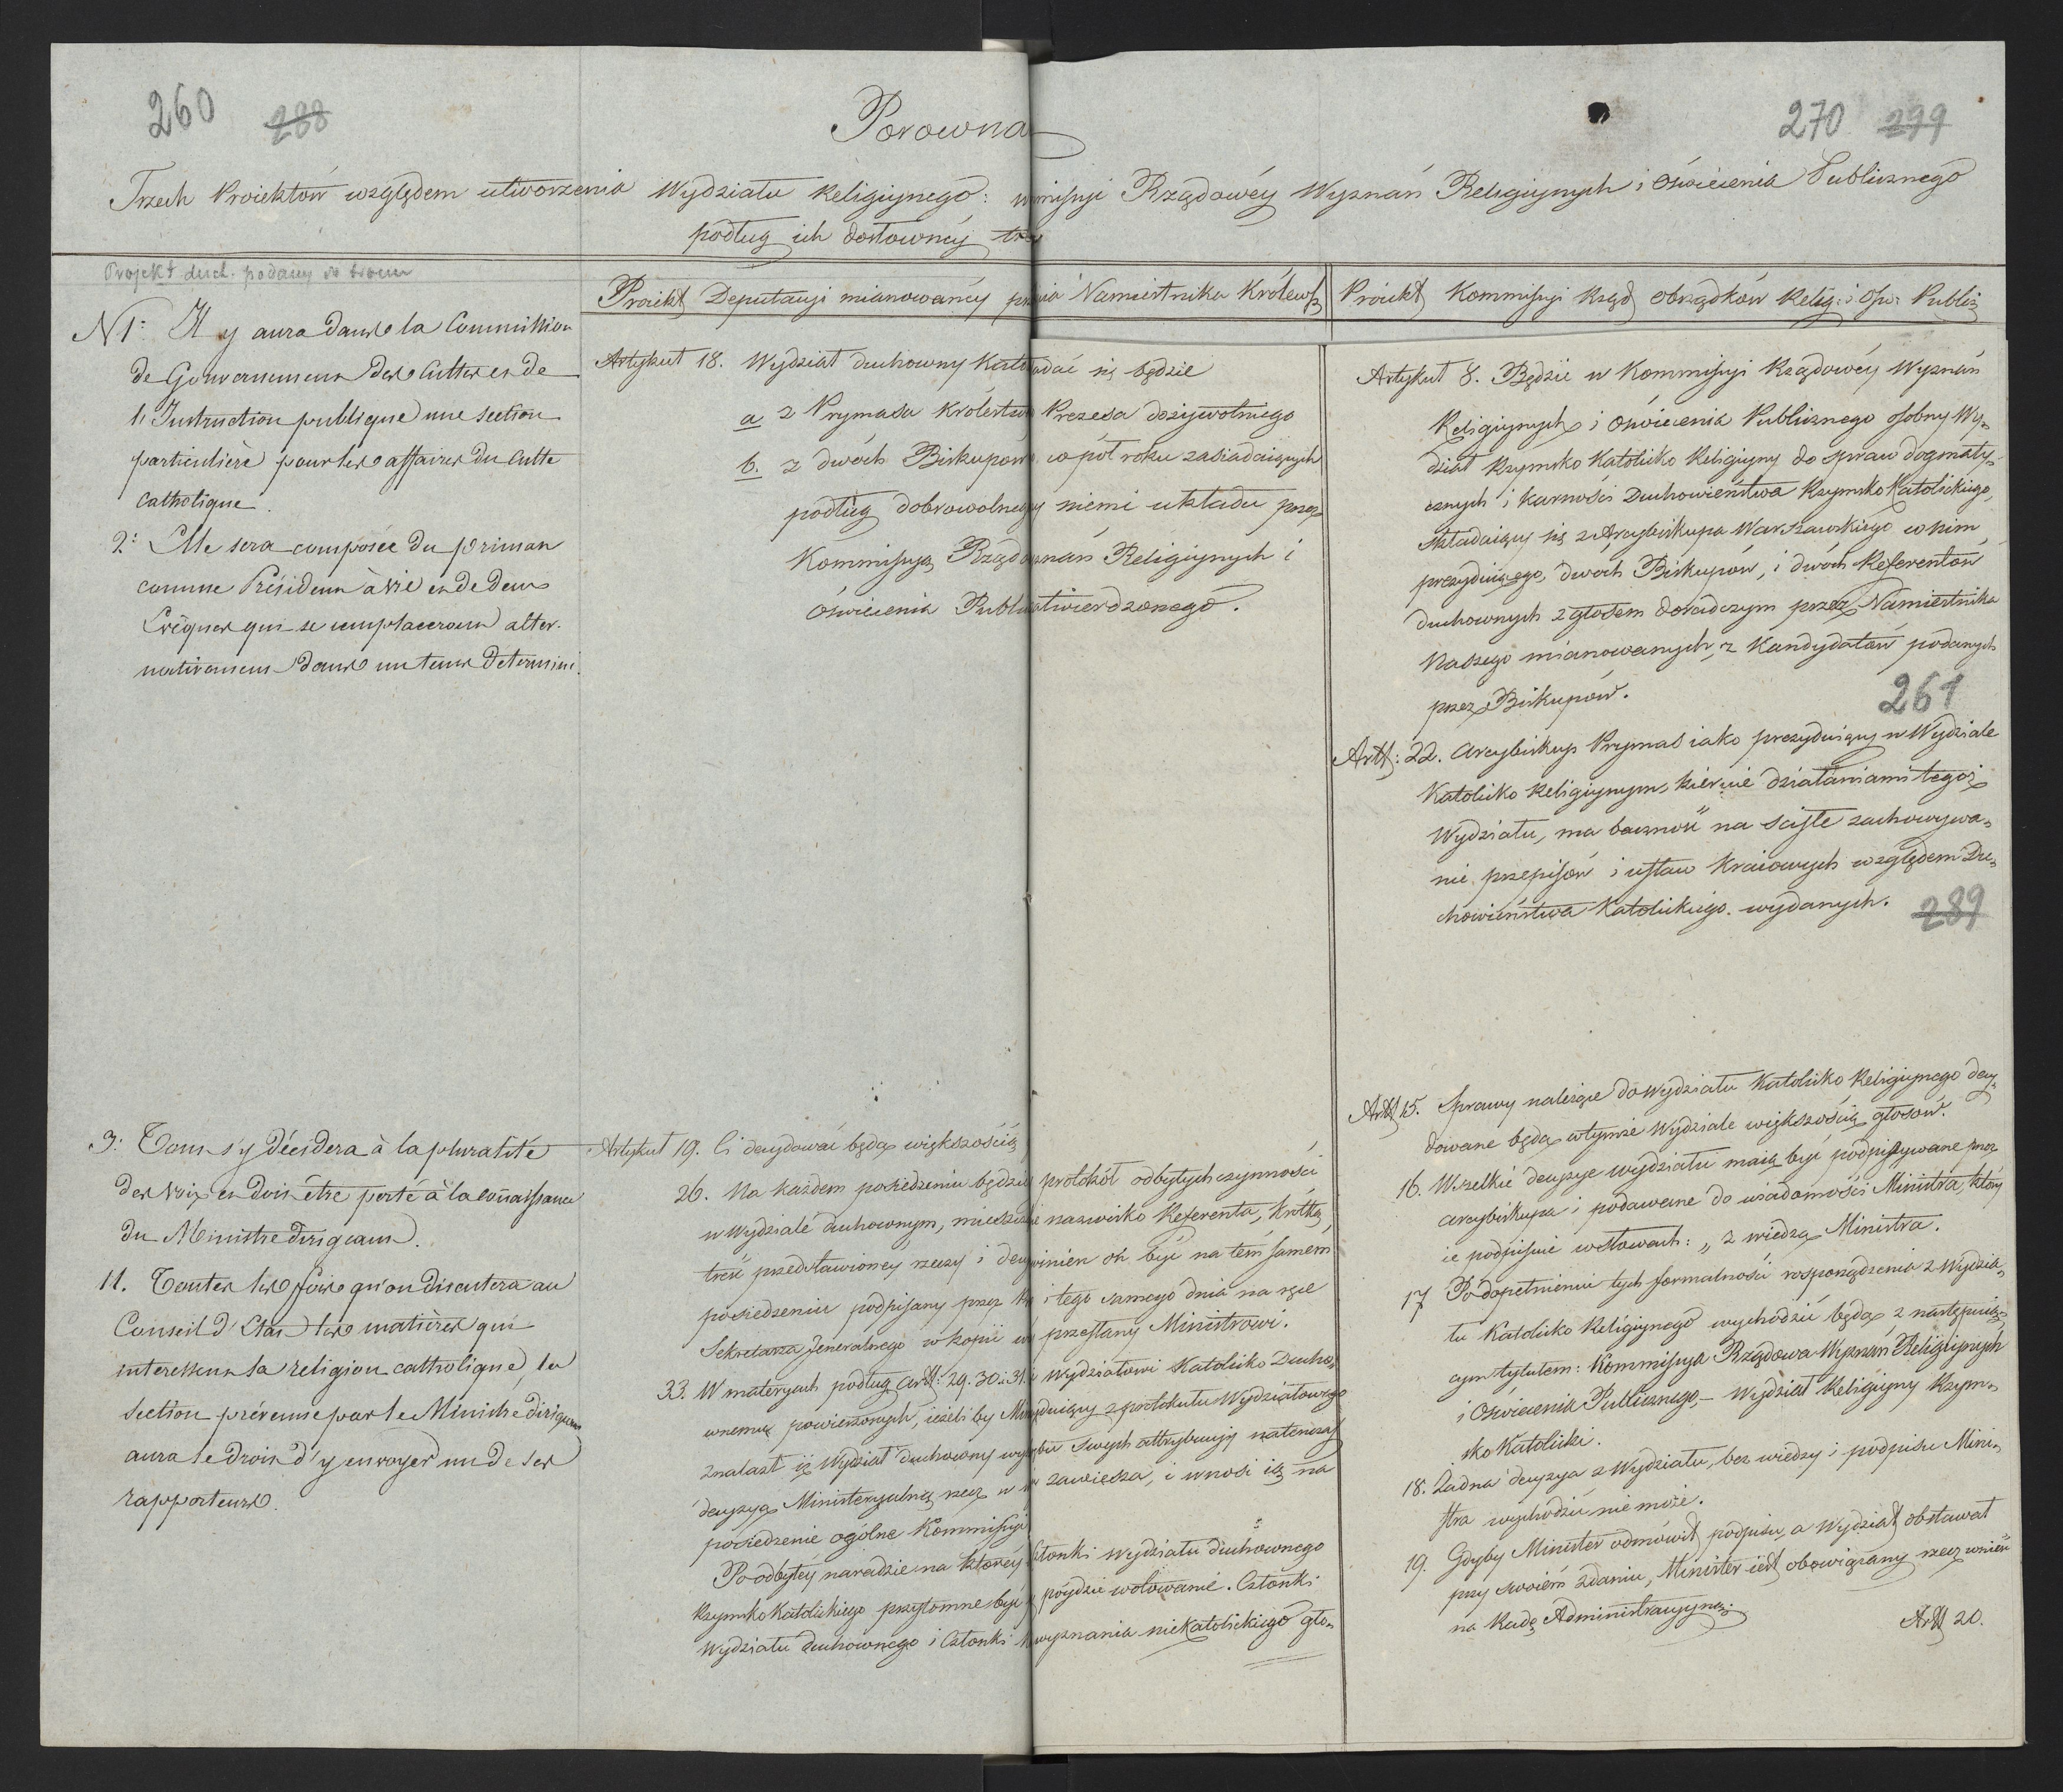 260 288
270 299
Porowna
Trzech Proiektów względem utworzenia Wydziału Religiynego: misyi Rządowéy Wyznań Religiynych i Oświecenia Publicznego
podług ich dosłownéy
Projekt duch. podany
Nº 1: Il y aura dans la Commission
de Gouvernement des Cultes et de
l'Instruction publique une section
particulière pour les affaires du Culte
catholique.
2: Elle sera composée du primat
comme Président à vie et de deux
Evêques qui se remplaceront alter-
nativement dans un tems determiné.
3: Tout s'y décidera à la pluralité
des voix et doit être porté à la connaissance
du Ministre dirigeant.
11. Toutes les fois qu'on discutera au
Conseil d'Etat les matières qui
interessent la religion catholique, la
section prévenue par le Ministre dirigeant
aura le droit d'y envoyer un de ses
rapporteurs.
Proiekt Deputacyi mianowanéy Namiestnika Królews
Artykuł 18. Wydział duchowny Kato dać się będzie
a z Prymasa Królestwa Prezesa dożywotniego
b. z dwóch Biskupów co pół roku zasiadaiących
podług dobrowolnego niemi układu przez
Kommissyą Rządo znań Religiynych i
Oświecenia Publi twierdzonego.
Artykuł 19. Ci decydować będą większością
26. Na każdem posiedzeniu będzie protokół odbytych czynności
w Wydziale duchownym, nazwisko Referenta, krótką
treść przedstawionéy rzeczy i winien on być na tém samém
posiedzeniu podpisany przez i tego samego dnia na ręce
Sekretarza Jeneralnego w kopii przesłany Ministrowi.
33. W materyach podług Art: 29. 30. i 31. Wydziałowi Katolicko Ducho-
wnemu powierzonych, ieżeli by z protokułu Wydziałowego
znalazł iż Wydział Duchowny swych attrybucyy natenczas
decyzyą Ministeryalną rzecz w zawiesza, i wnosi ią na
posiedzenie ogólne Kommissyi
Po odbytéy naradzie na któréy członki Wydziału duchownego
Rzymsko Katolickiego przytomne być póydzie wotowanie. Członki
Wydziału Duchownego i Członki wyznania niekatolickiego gło-
Proiekt Kommissyi Rząd obrządków Relig: i Ośw: Publicz
Artykuł 8. Będzie w Kommissyi Rządowéy Wyznań
Religiynych i Oświecenia Publicznego osobny Wy-
dział Rzymsko Katolicko Religiyny do spraw dogmaty-
cznych i karności Duchowieństwa Rzymsko Katolickiego,
składaiący się z Arcybiskupa Warszawskiego w nim
prezyduiącego, dwóch Biskupów, i dwóch Referentów
duchownych z głosem doradczym przez Namiestnika
Naszego mianowanych, z Kandydatów podanych
przez Biskupów.
261
Artt: 22. Arcybiskup Prymas iako prezyduiący w Wydziale
Katolicko Religiynym, kieruie działaniami tegoż
Wydziału, ma baczność na ścisłe zachowywa-
nie przepisów i ustaw Kraiowych względem Du-
chowieństwa Katolickiego wydanych.
289
Artt 15. Sprawy należące do Wydziału Katolicko Religiynego decy-
dowane będą w tymże Wydziale większością głosów.
16. Wszelkie decyzye Wydziału maią być podpisywane przez
Arcybiskupa i podawane do wiadomości Ministra, który
ie podpisuie w słowach: „z wiedzą Ministra.
17 Po dopełnieniu tych formalności rosporządzenia z Wydzia-
łu Katolicko Religiynego wychodzić będą z następuią-
cym tytułem: Kommissya Rządowa Wyznań Religiynych
i Oświecenia Publicznego,- Wydział Religiyny Rzym-
sko Katolicki.
18. Żadna decyzya z Wydziału, bez wiedzy i podpisu Mini-
stra wychodzić nie może.
19. Gdyby Minister odmówił podpisu, a Wydział obstawał
przy swoiém zdaniu, Minister iest obowiązany rzecz wnieść
na Radę Administracyyną.
Artt 20.